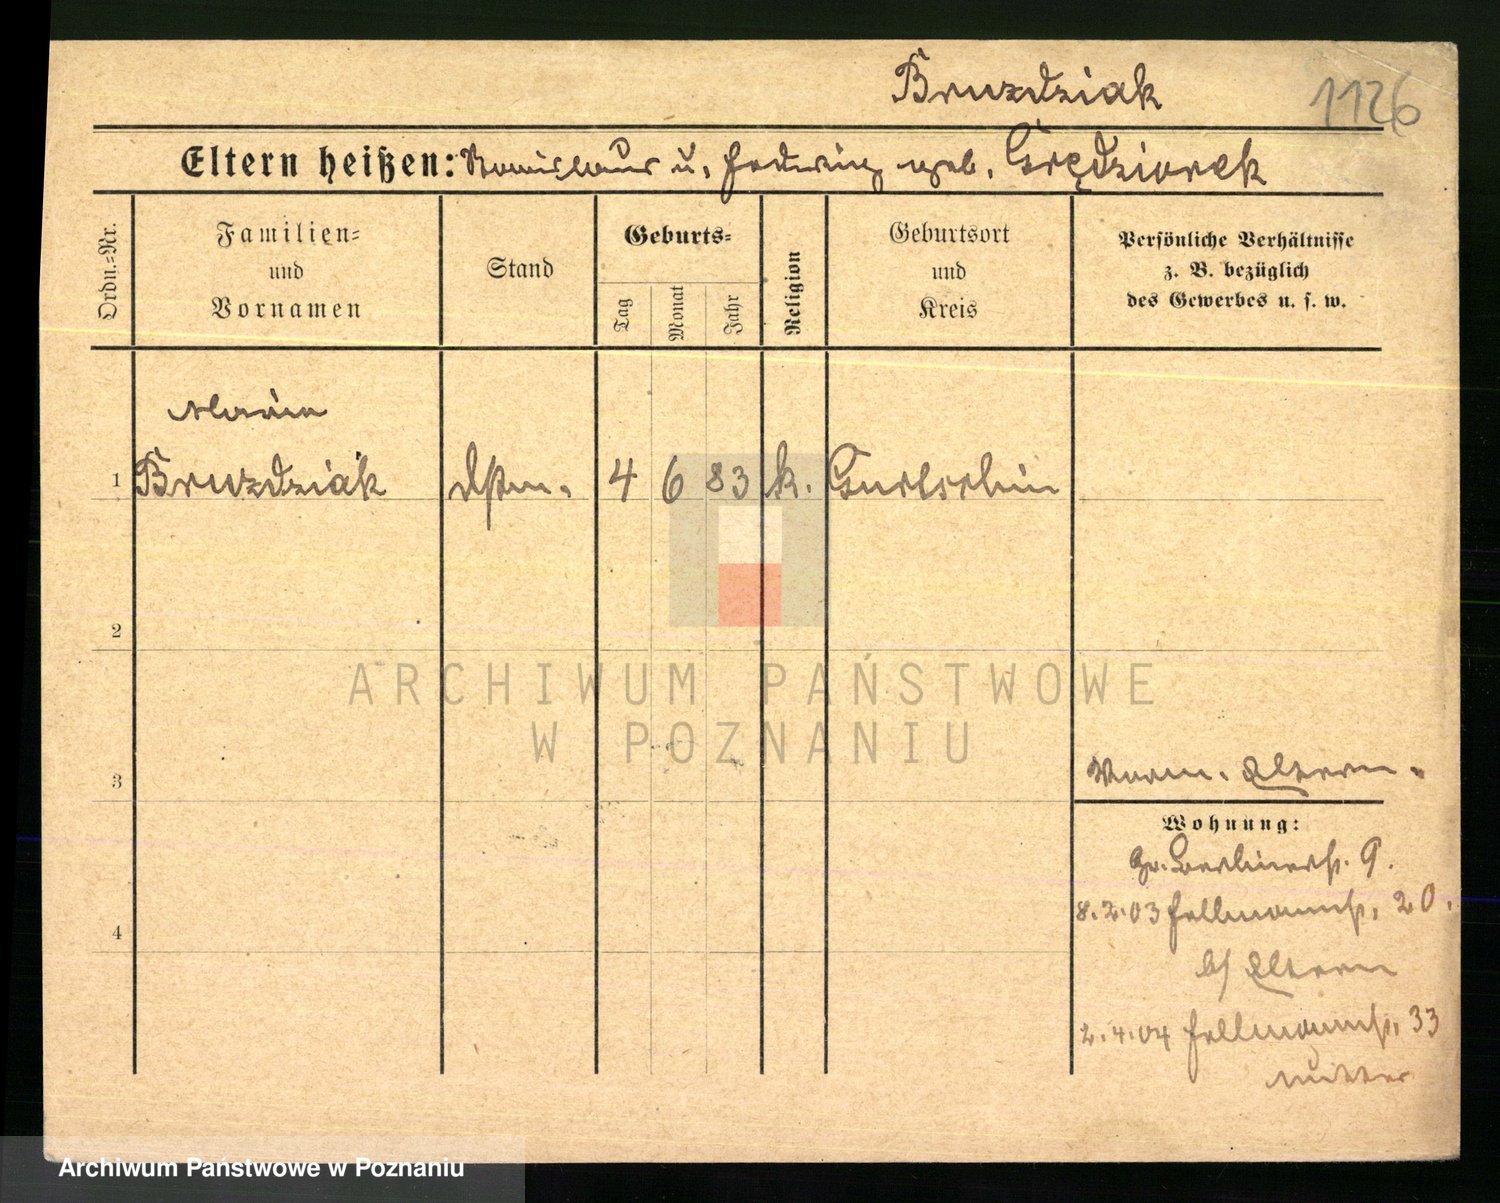 Bruzdziak
1126
Eltern heißen: Stanislaus u. Hedwig geb. Grędziorek
Ordn.=Nr.
Familien=
und
Vornamen
Stand
Geburts=
Tag
Monat
Jahr
Religion
Geburtsort
und
Kreis
Persönliche Verhältnisse
z. B. bezüglich
des Gewerbes u. s. w.
Marie
1 Bruzdziak 4 6 83 k. Gurtschin
2
ARCHIWUM PAŃSTWOWE
W POZNANIU
3
Eltern.
Wohnung:
Gr. Berlinerstr. 9.
8.2.03 Hellmannstr. 20.
b/ Eltern
4
2.4.04 Hellmannstr. 33
Mutter
Archiwum Państwowe w Poznaniu